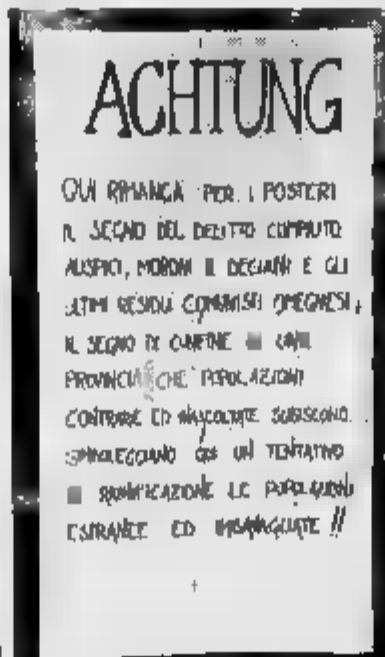 ACHTUNG
QUI RIMANGA PER I POSTERI
IL SEGNO DEL DELITTO COMPIUTO
AUSPICI, MORONI E GLI
ULTIMI RESIDUI COMUNISTI OMEGNESI,
IL SEGNO DI CONFINE
PROVINCIA CHE POPOLAZIONI
CONTRARIE ED INASCOLTATE SUBISCONO.
UN TENTATIVO
LE POPOLAZIONI
ESTRANEE ED !!